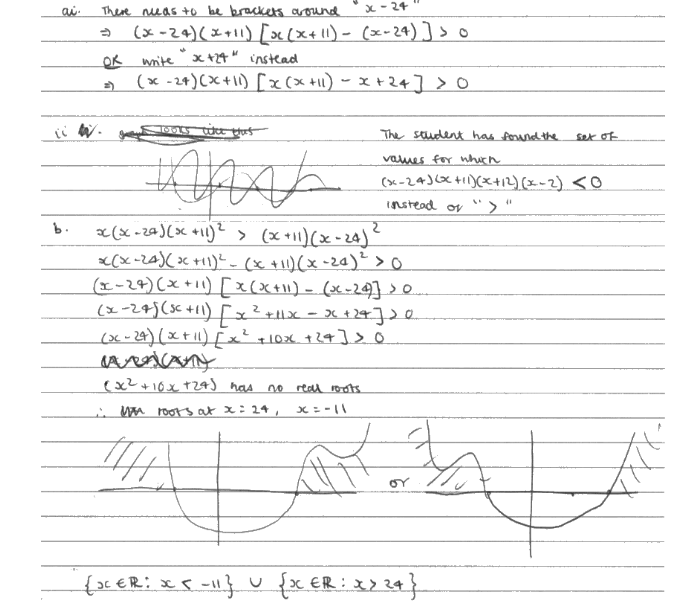 ai. There needs to be brackets around "x-24"
⇒ (x-24)(x+11)[x(x+11)-(x-24)] > 0
OR write "x+24" instead
⇒ (x-24)(x+11)[x(x+11)-x+24] > 0
ii
The student has found the set of
values for which
(x-24)(x+11)(x+12)(x-2) < 0
instead of ">"
b. x(x-24)(x+11)² > (x+11)(x-24)²
x(x-24)(x+11)² - (x+11)(x-24)² > 0
(x-24)(x+11)[x(x+11)-(x-24)] > 0
(x-24)(x+11)[x²+11x-x+24] > 0
(x-24)(x+11)[x²+10x+24] > 0
(x²+10x+24) has no real roots
∴ roots at x=24, x=-11
or
{x∈ℝ: x < -11} ∪ {x∈ℝ: x > 24}